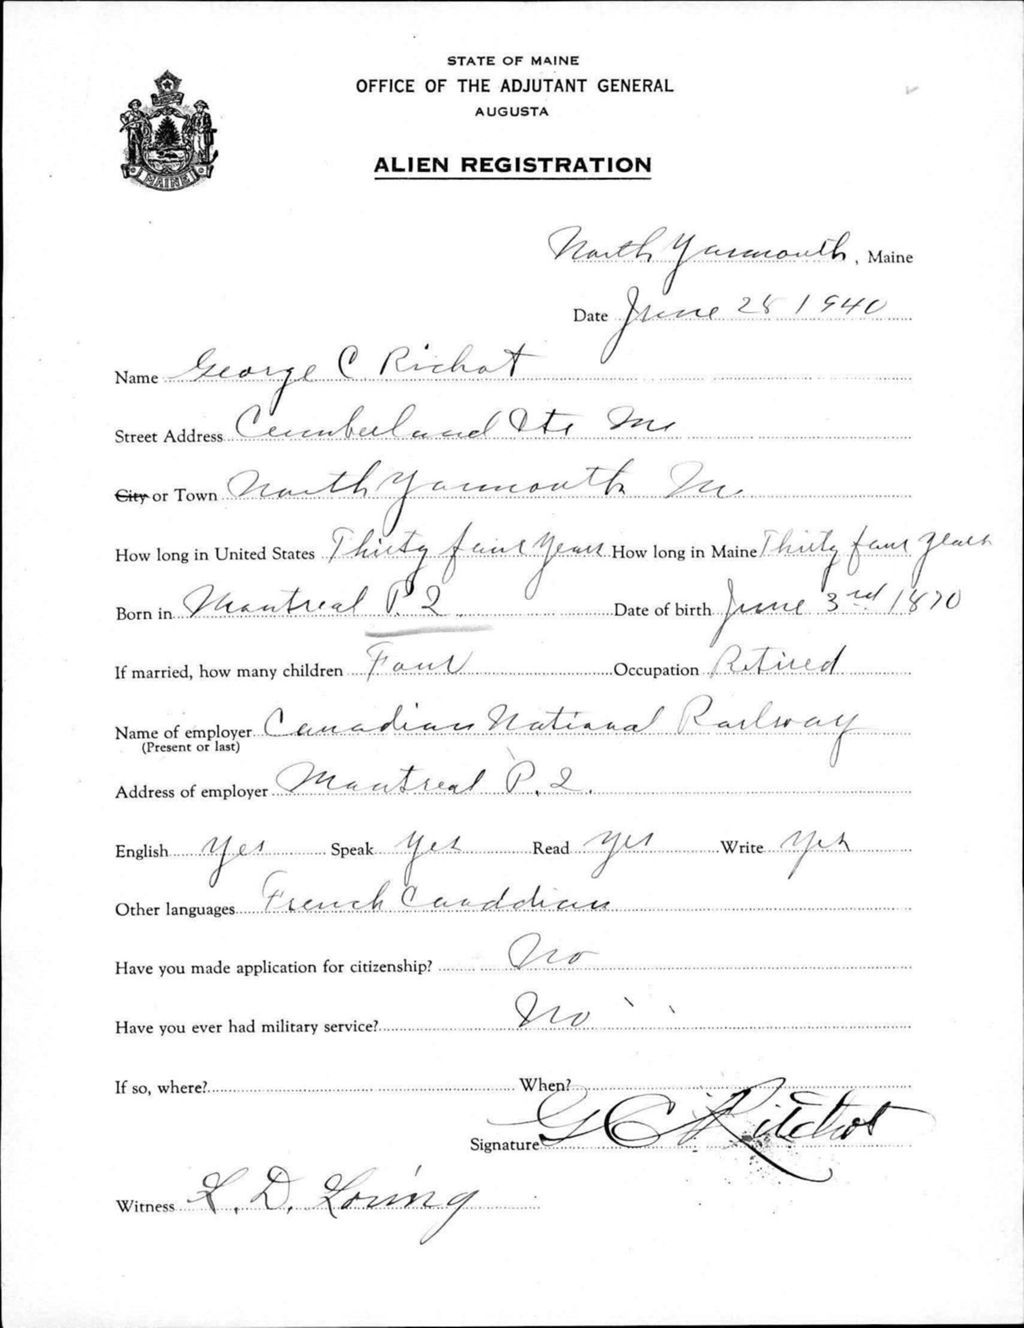 STATE OF MAINE
OFFICE OF THE ADJUTANT GENERAL
AUGUSTA
MAINE
ALIEN REGISTRATION
North Yarmouth, Maine
Date June 28 1940
Name George C Richot
Street Address Cumberland Ctr Me
City or Town North Yarmouth Me.
How long in United States Thirty four Years How long in Maine Thirty four years
Born in Montreal P. Q. Date of birth June 3rd 1870
If married, how many children Four Occupation Retired
Name of employer Canadian National Railway
(Present or last)
Address of employer Montreal P. Q.
English Yes Speak Yes Read Yes Write Yes
Other languages French Canddian
Have you made application for citizenship? No
Have you ever had military service? No
If so, where? When?
Signature G C Ritchot
Witness L. D. Loring